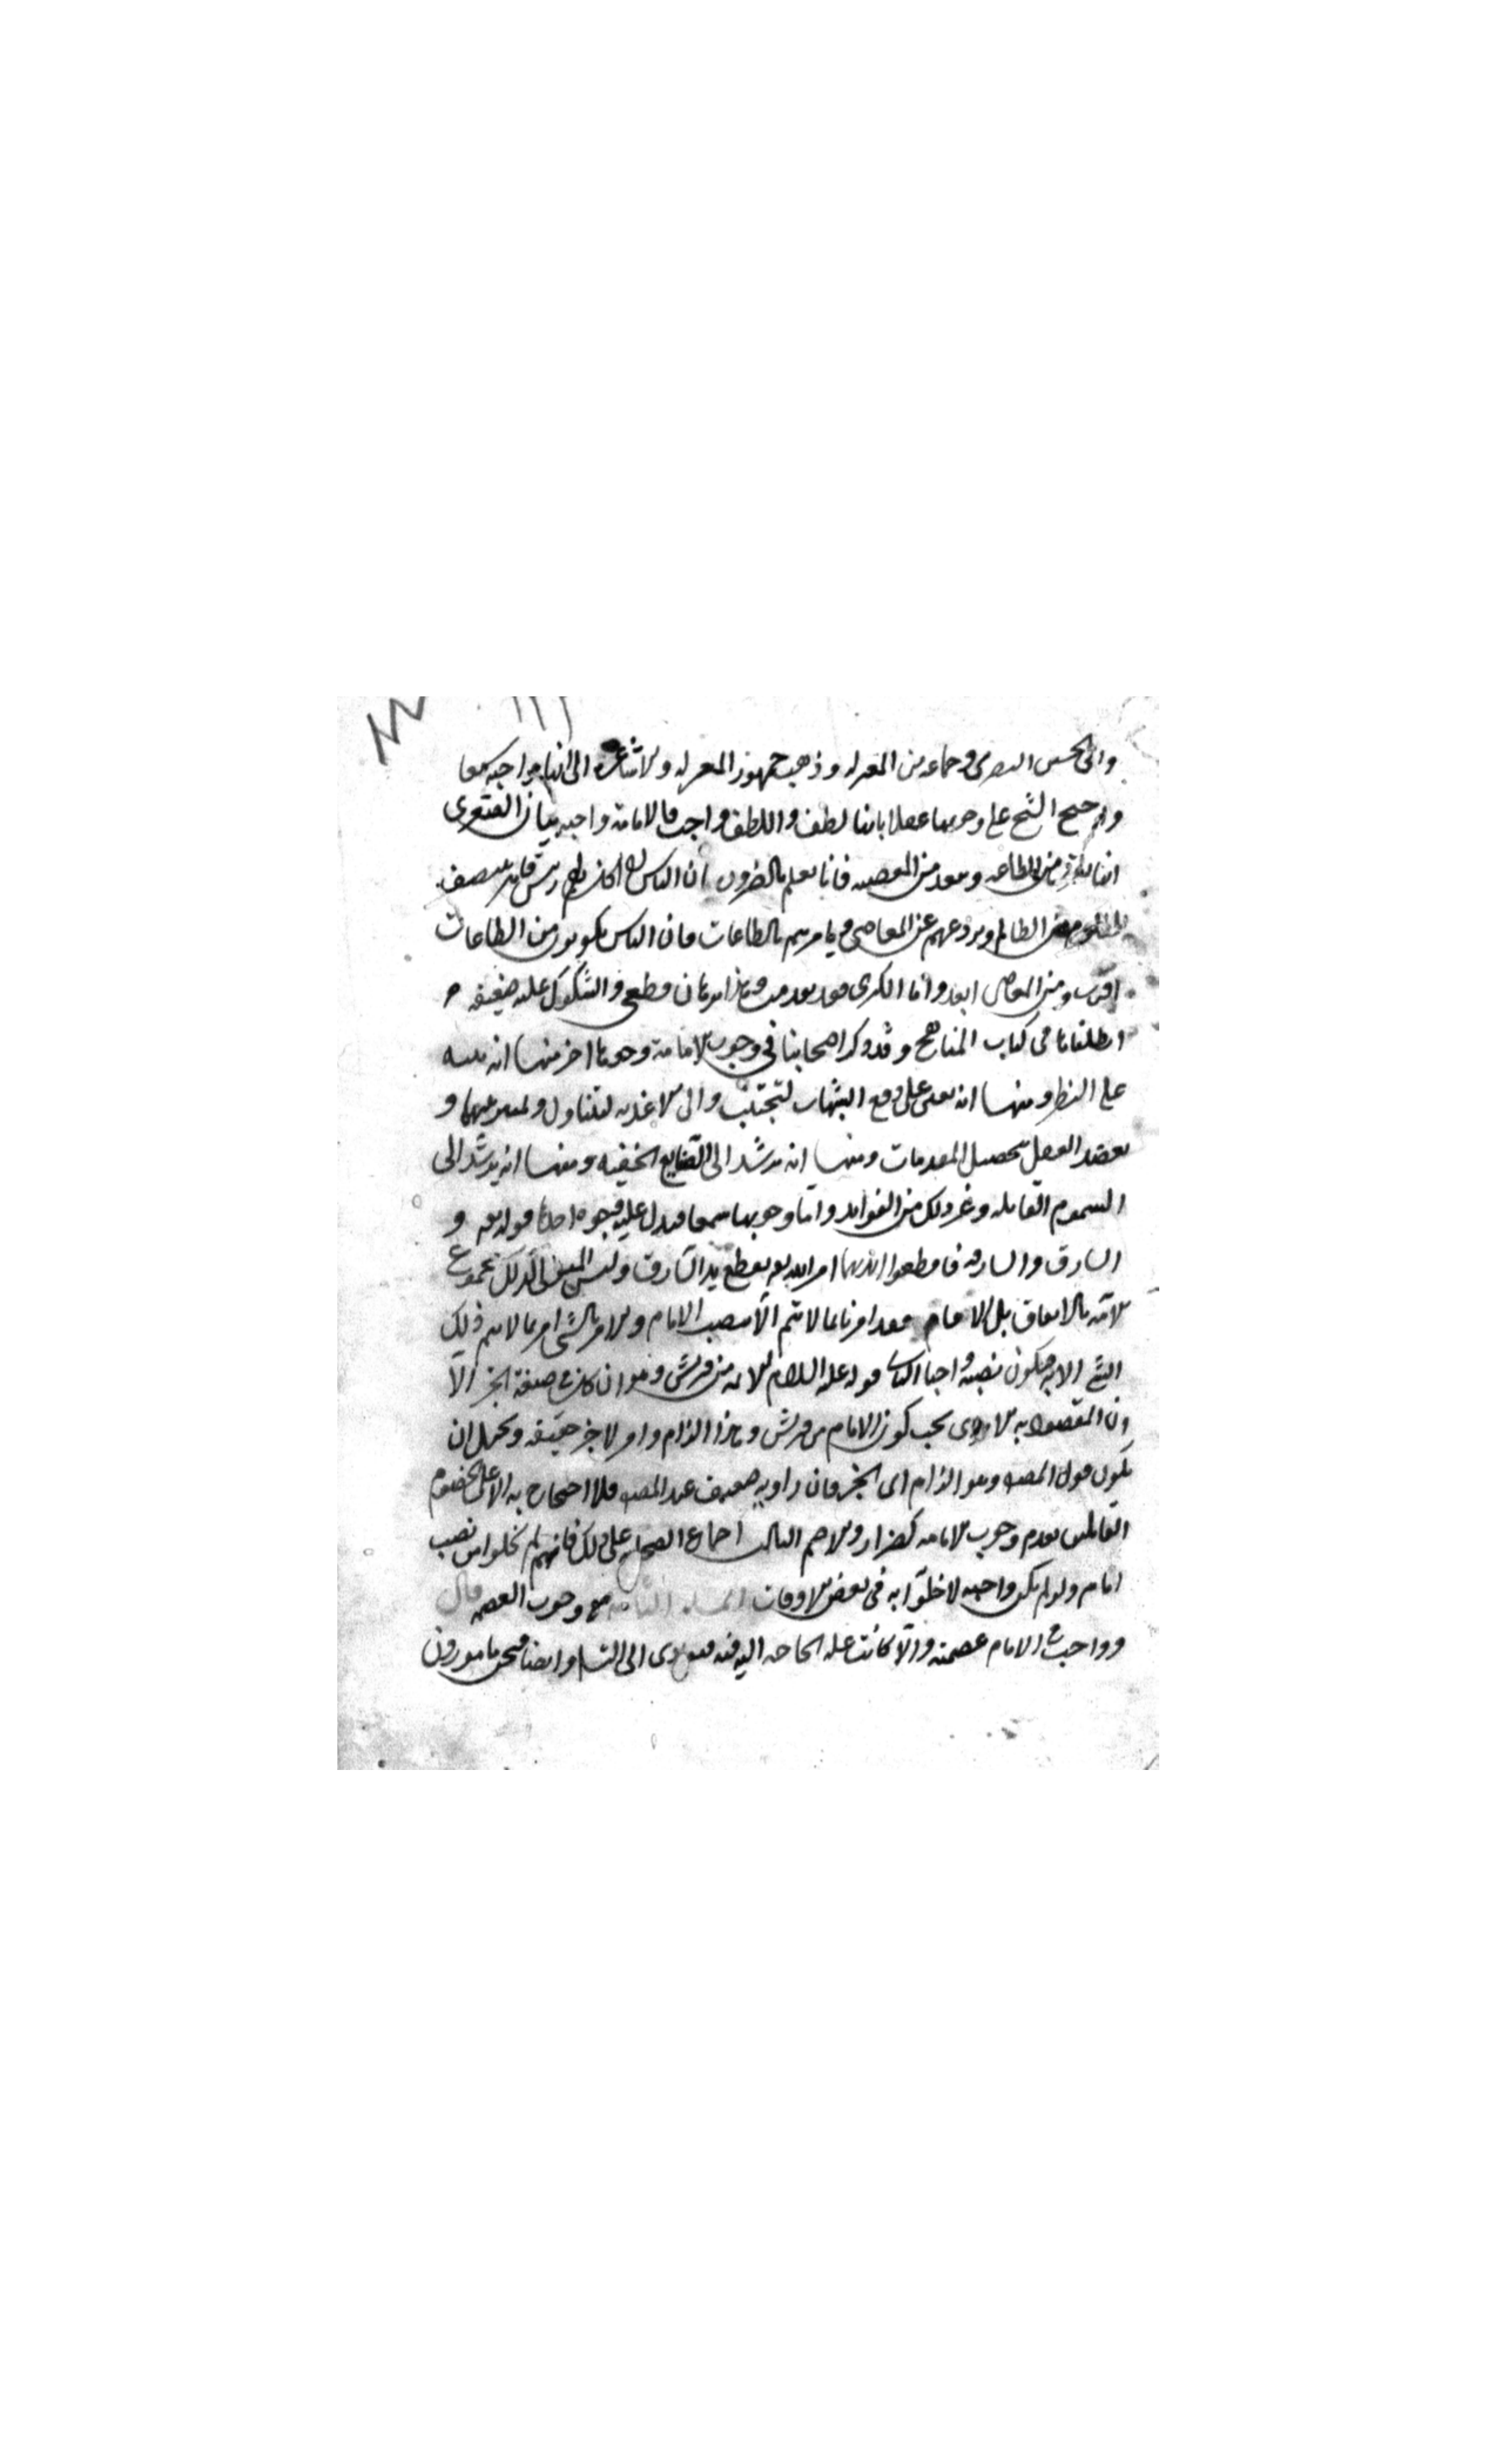 وابی الحسن البصری و جماعه من المعتزله و ذهب جمهور المعتزله والاشاعره الی انها واجبه سمعا
واحتج الشیخ علی وجوبها عقلا بانها لطف واللطف واجب فالامامة واجبه بیان الصغری
انها مقربة من الطاعه ومبعد من المعصیه فانا نعلم بالضرورة ان الناس اذا کان لهم رئیس قاهر ینتصف
للمظلوم من الظالم ویردعهم عن المعاصی ویامرهم بالطاعات فان الناس یکونون من الطاعات
اقرب ومن المعاصی ابعد واما الکبری فقد تقدمت وهذا برهان قطعی والشکوک علیه ضعیفه
ابطلناها فی کتاب المناهج وقد ذکر اصحابنا فی وجوب الامامة وجوها اخر منها انه ینبه
علی النظر ومنها انه یعین علی دفع الشبهات لتجتنب والی الاغذیه لتتناول و و
یعضد العقل بتحصیل المقدمات ومنها انه یرشد الی الصنایع الخفیه ومنها انه یرشد الی
السموم القاتله وغیر ذلک من الفواید واما وجوبها سمعا فیدل علیه وجوه احدها قوله تعه و
السارق والسارقه فاقطعوا ایدیهما امر الله تعه بقطع ید السارق ولیس المعنی لذلک مجموع
الامة بالاتفاق بل الامام فقد امرنا بما لا یتم الا بنصب الامام والامر بالشی امر بما لا یتم ذلک
الشی الا به فیکون نصبه واجبا الثانی قوله علیه السلام الائمه من قریش وهو ان کان فی صیغة الخبر الا
ان المقصود به الامر ای یجب کون الامام من قریش وهذا الزام وامر لا خبر حقیقه ویحتمل ان
یکون قول المصنف وهو الزام ای الخبر فان راویه ضعیف عند المصنف فلا احتجاج به الا علی الخصوم
القائلین بعدم وجوب الامامه کضرار والاصم الثالث اجماع الصحابه علی ذلک فانهم لم یخلوا من نصب
امام ولو لم تکن واجبه لاخلوا به فی بعض الاوقات المسئله الثانیه فی وجوب العصمه قال
وواجب فی الامام عصمته والا کانت علة الحاجه الیه فیه فیؤدی الی التسلسل وایضا فنحن مامورون